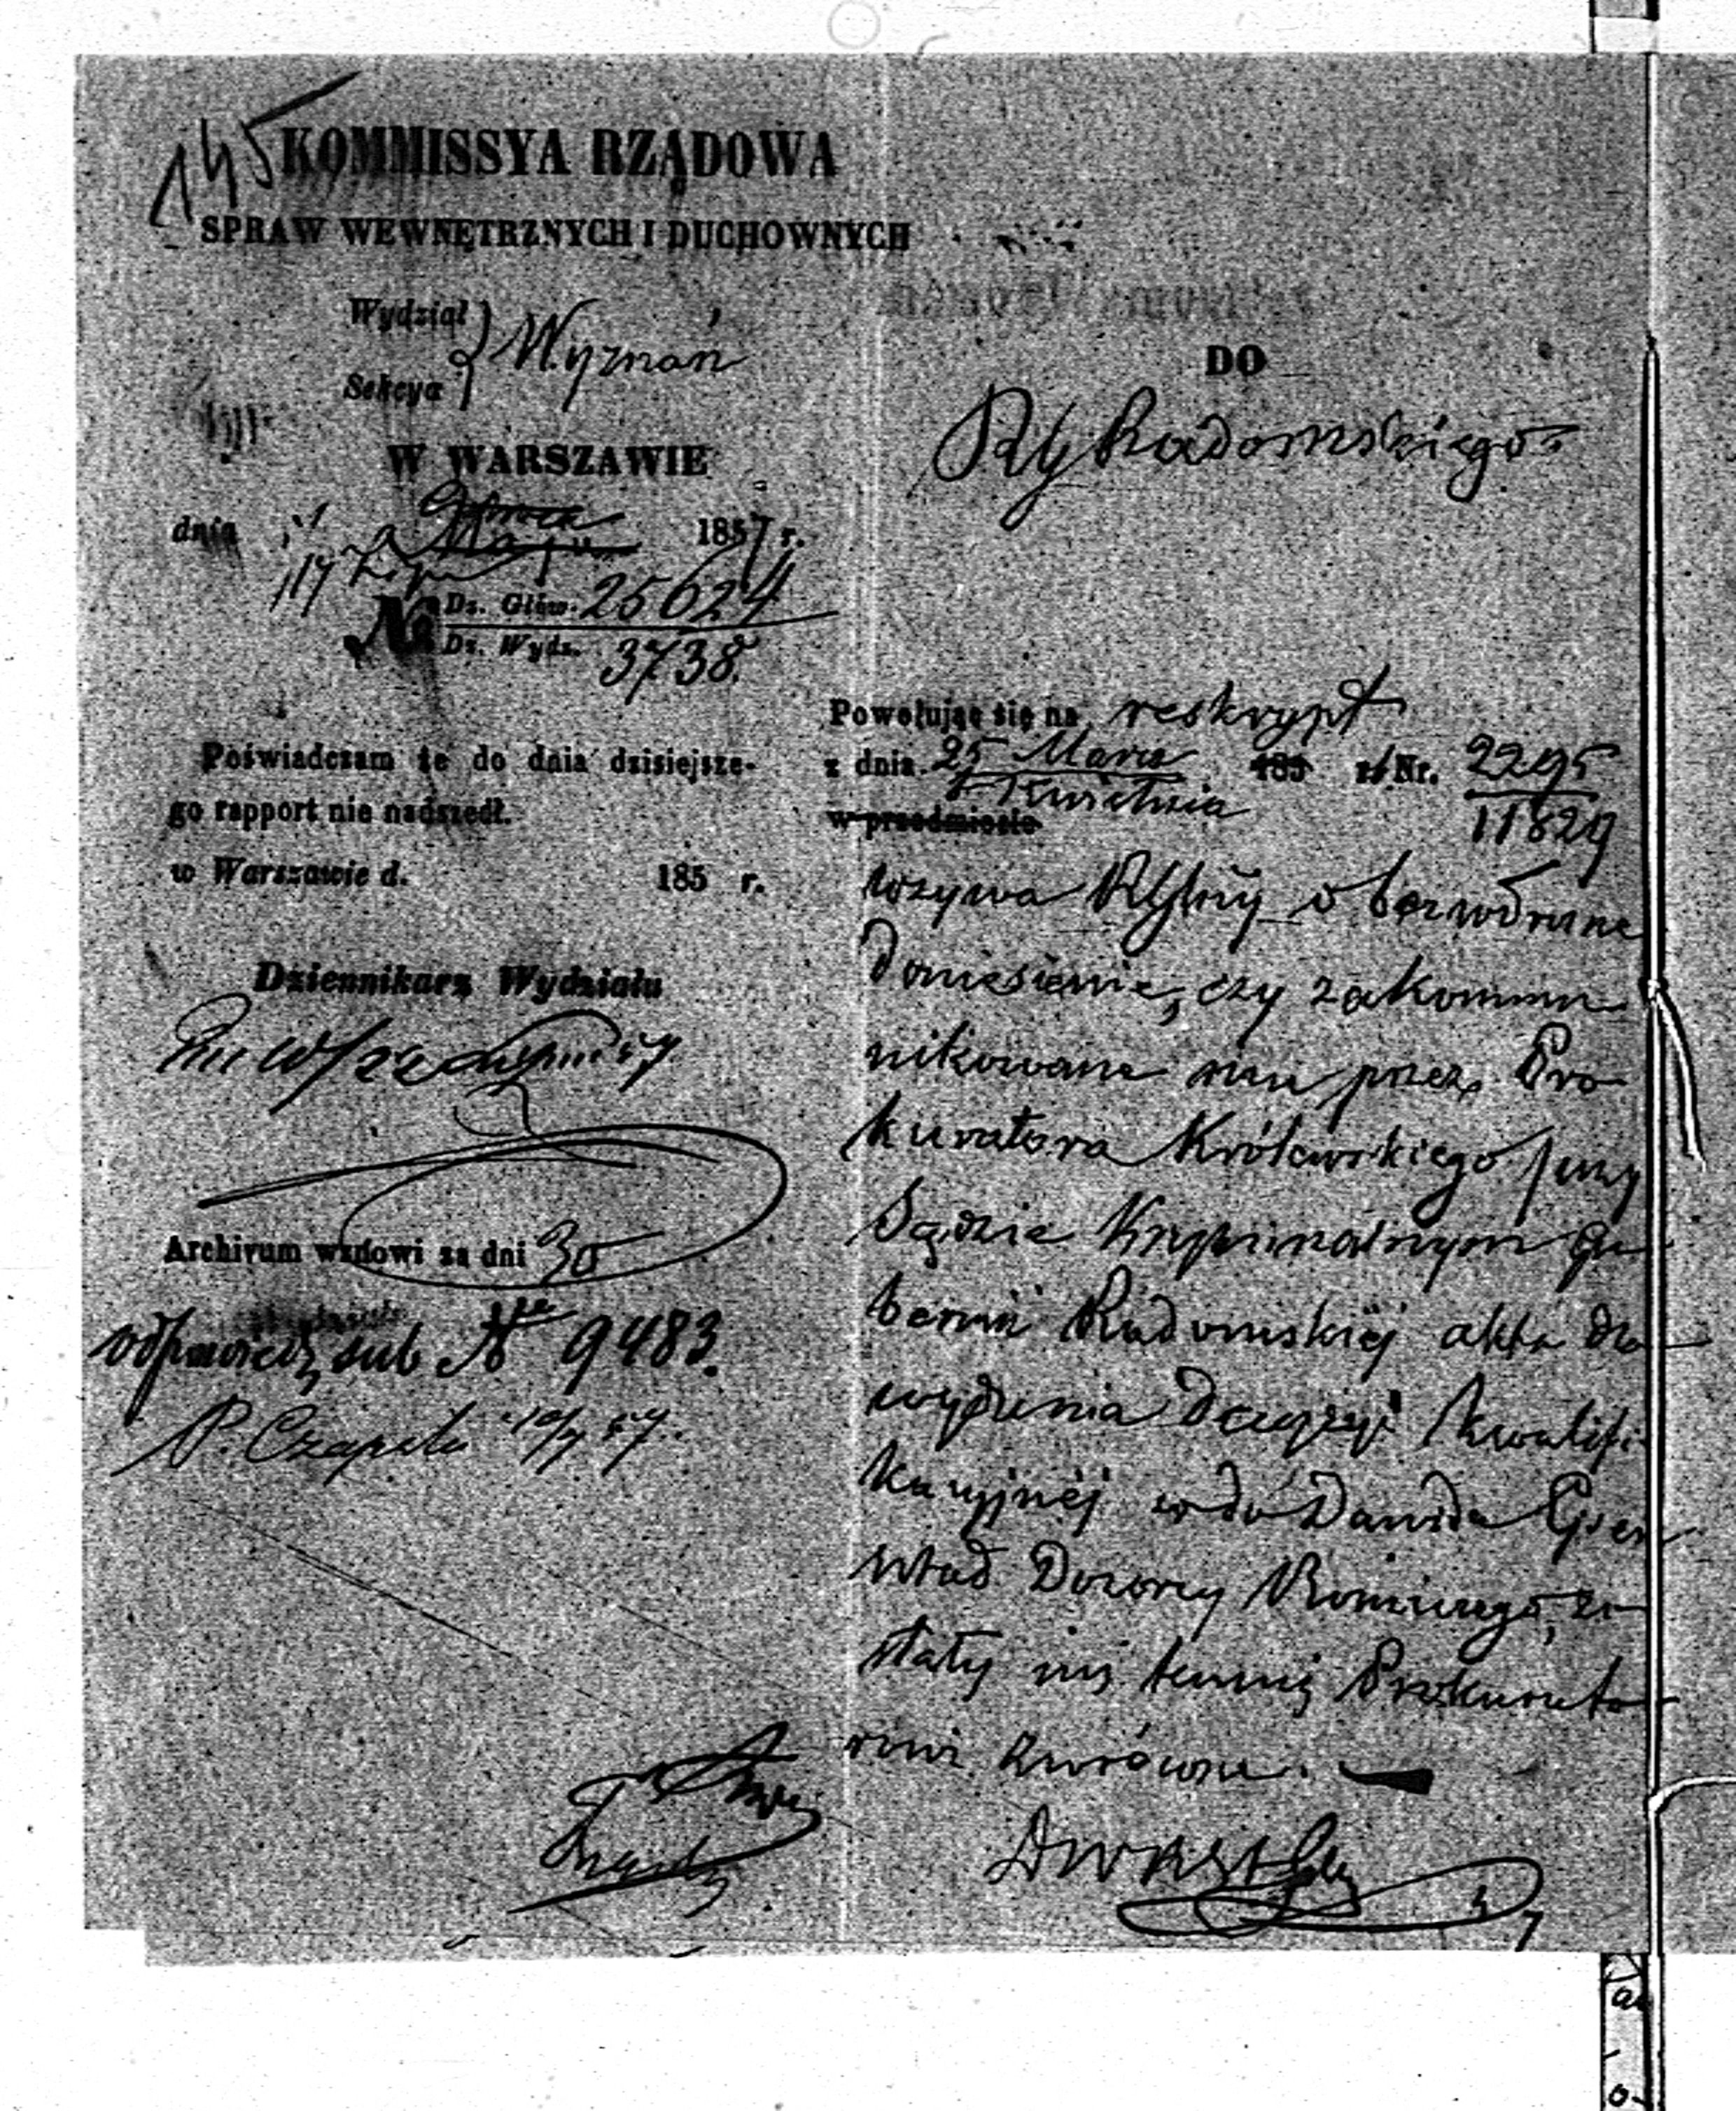 145
KOMMISSYA RZĄDOWA
SPRAW WEWNĘTRZNYCH I DUCHOWNYCH
Wydział
Sekcya
Wyznań
W WARSZAWIE
dnia 1857 r.
Maja
Nr Dz. Głów. 25624
Dz. Wydz. 3738.
Poświadczam że do dnia dzisiejsze-
go rapport nie nadszedł.
w Warszawie d. 185 r.
Dziennikarz Wydziału
Archivum wznowi za dni 30
odpowiedź sub No 9483.
DO
Rządu Radomskiego
Powołując się na reskrypt
z dnia 25 Marca 185 Nr. 2295
Kwietnia 11829
w przedmiocie
wzywa o bezwłoczne
doniesienie, czy zakommu
nikowane mu przez Pro
kuratora Królewskiego przy
Sądzie Kryminalnym Gu
bernii Radomskiej akta do
wydania decyzyi kwalifi
kacyjnej Dawida
Dozorcy Bożniczego, zo
stały już temuż Prokurato
rowi zwrócone.